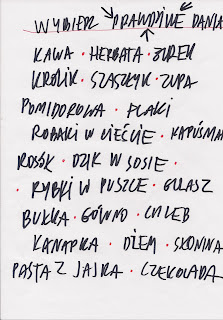 WYBIERZ PRAWDZIWE DANIA
KAWA · HERBATA · ŻUREK
KRÓLIK · SZASZŁYK · ZUPA
POMIDOROWA · FLAKI
ROBAKI W CIEŚCIE · KAPUŚNIAK
ROSÓŁ · DZIK W SOSIE ·
· RYBKI W PUSZCE · GULASZ
BUŁKA · GÓWNO · CHLEB
KANAPKA · DŻEM · SŁONINA
PASTA Z JAJKA · CZEKOLADA